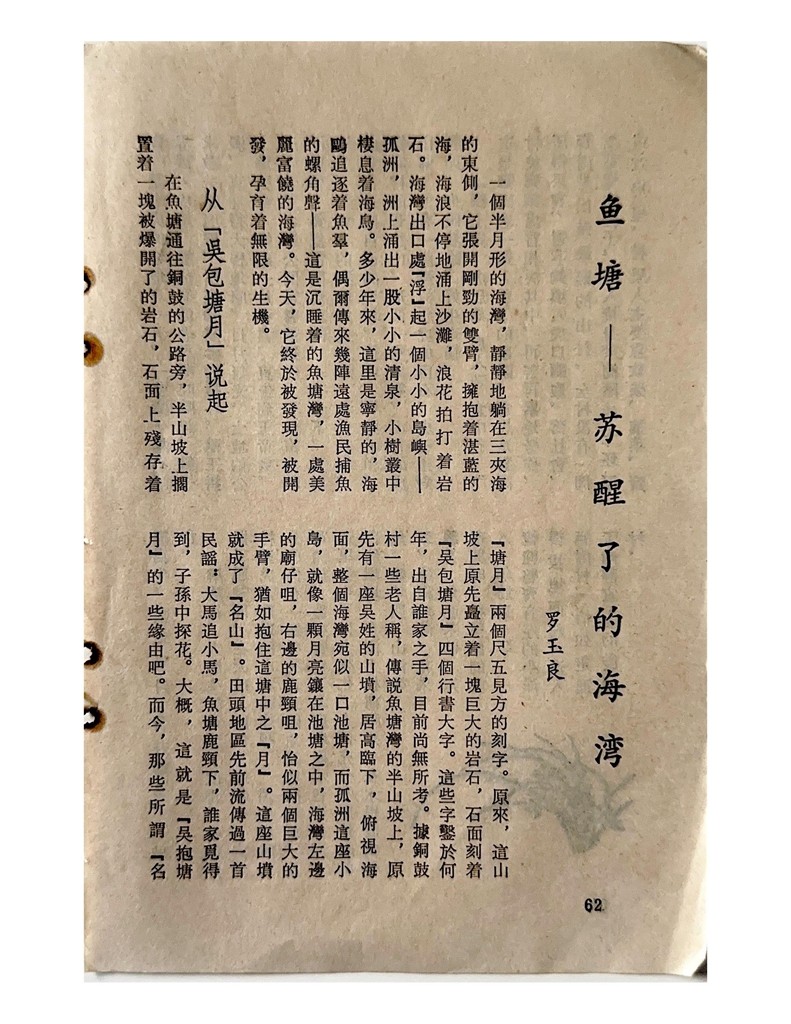 鱼塘——苏醒了的海湾
罗玉良
一個半月形的海灣，靜靜地躺在三夾海
的東側，它張開剛勁的雙臂，擁抱着湛藍的
海，海浪不停地涌上沙灘，浪花拍打着岩
石。海灣出口處『浮』起一個小小的島嶼——
孤洲，洲上涌出一股小小的清泉，小樹叢中
棲息着海鳥。多少年來，這里是寧靜的，海
鷗追逐着魚羣，偶爾傳來幾陣遠處漁民捕魚
的螺角聲——這是沉睡着的魚塘灣，一處美
麗富饒的海灣。今天，它終於被發現，被開
發，孕育着無限的生機。
从「吳包塘月」说起
在魚塘通往銅鼓的公路旁，半山坡上擱
置着一塊被爆開了的岩石，石面上殘存着
『塘月』兩個尺五見方的刻字。原來，這山
坡上原先矗立着一塊巨大的岩石，石面刻着
『吳包塘月』四個行書大字。這些字鑿於何
年，出自誰家之手，目前尚無所考。據銅鼓
村一些老人稱，傳説魚塘灣的半山坡上，原
先有一座吳姓的山墳，居高臨下，俯視海
面，整個海灣宛似一口池塘，而孤洲這座小
島，就像一顆月亮鑲在池塘之中，海灣左邊
的廟仔咀，右邊的鹿頸咀，恰似兩個巨大的
手臂，猶如抱住這塘中之『月』。這座山墳
就成了『名山』。田頭地區先前流傳過一首
民謡：大馬追小馬，魚塘鹿頸下，誰家覓得
到，子孫中探花。大概，這就是『吳抱塘
月』的一些緣由吧。而今，那些所謂『名
62